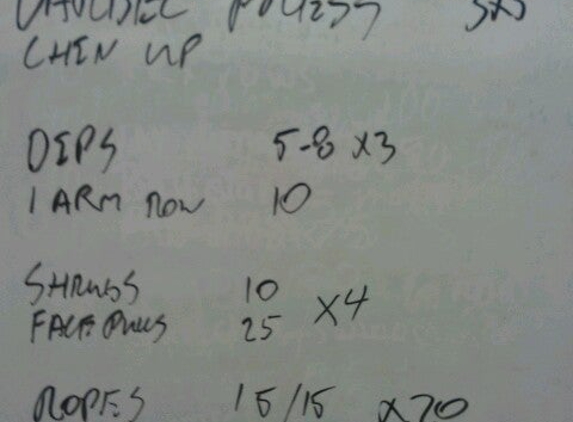 CHIN UP
DIPS 5-8 x3
1 ARM ROW 10
SHRUGS 10
FACE PULLS 25 x4
ROPES 15/15 x20